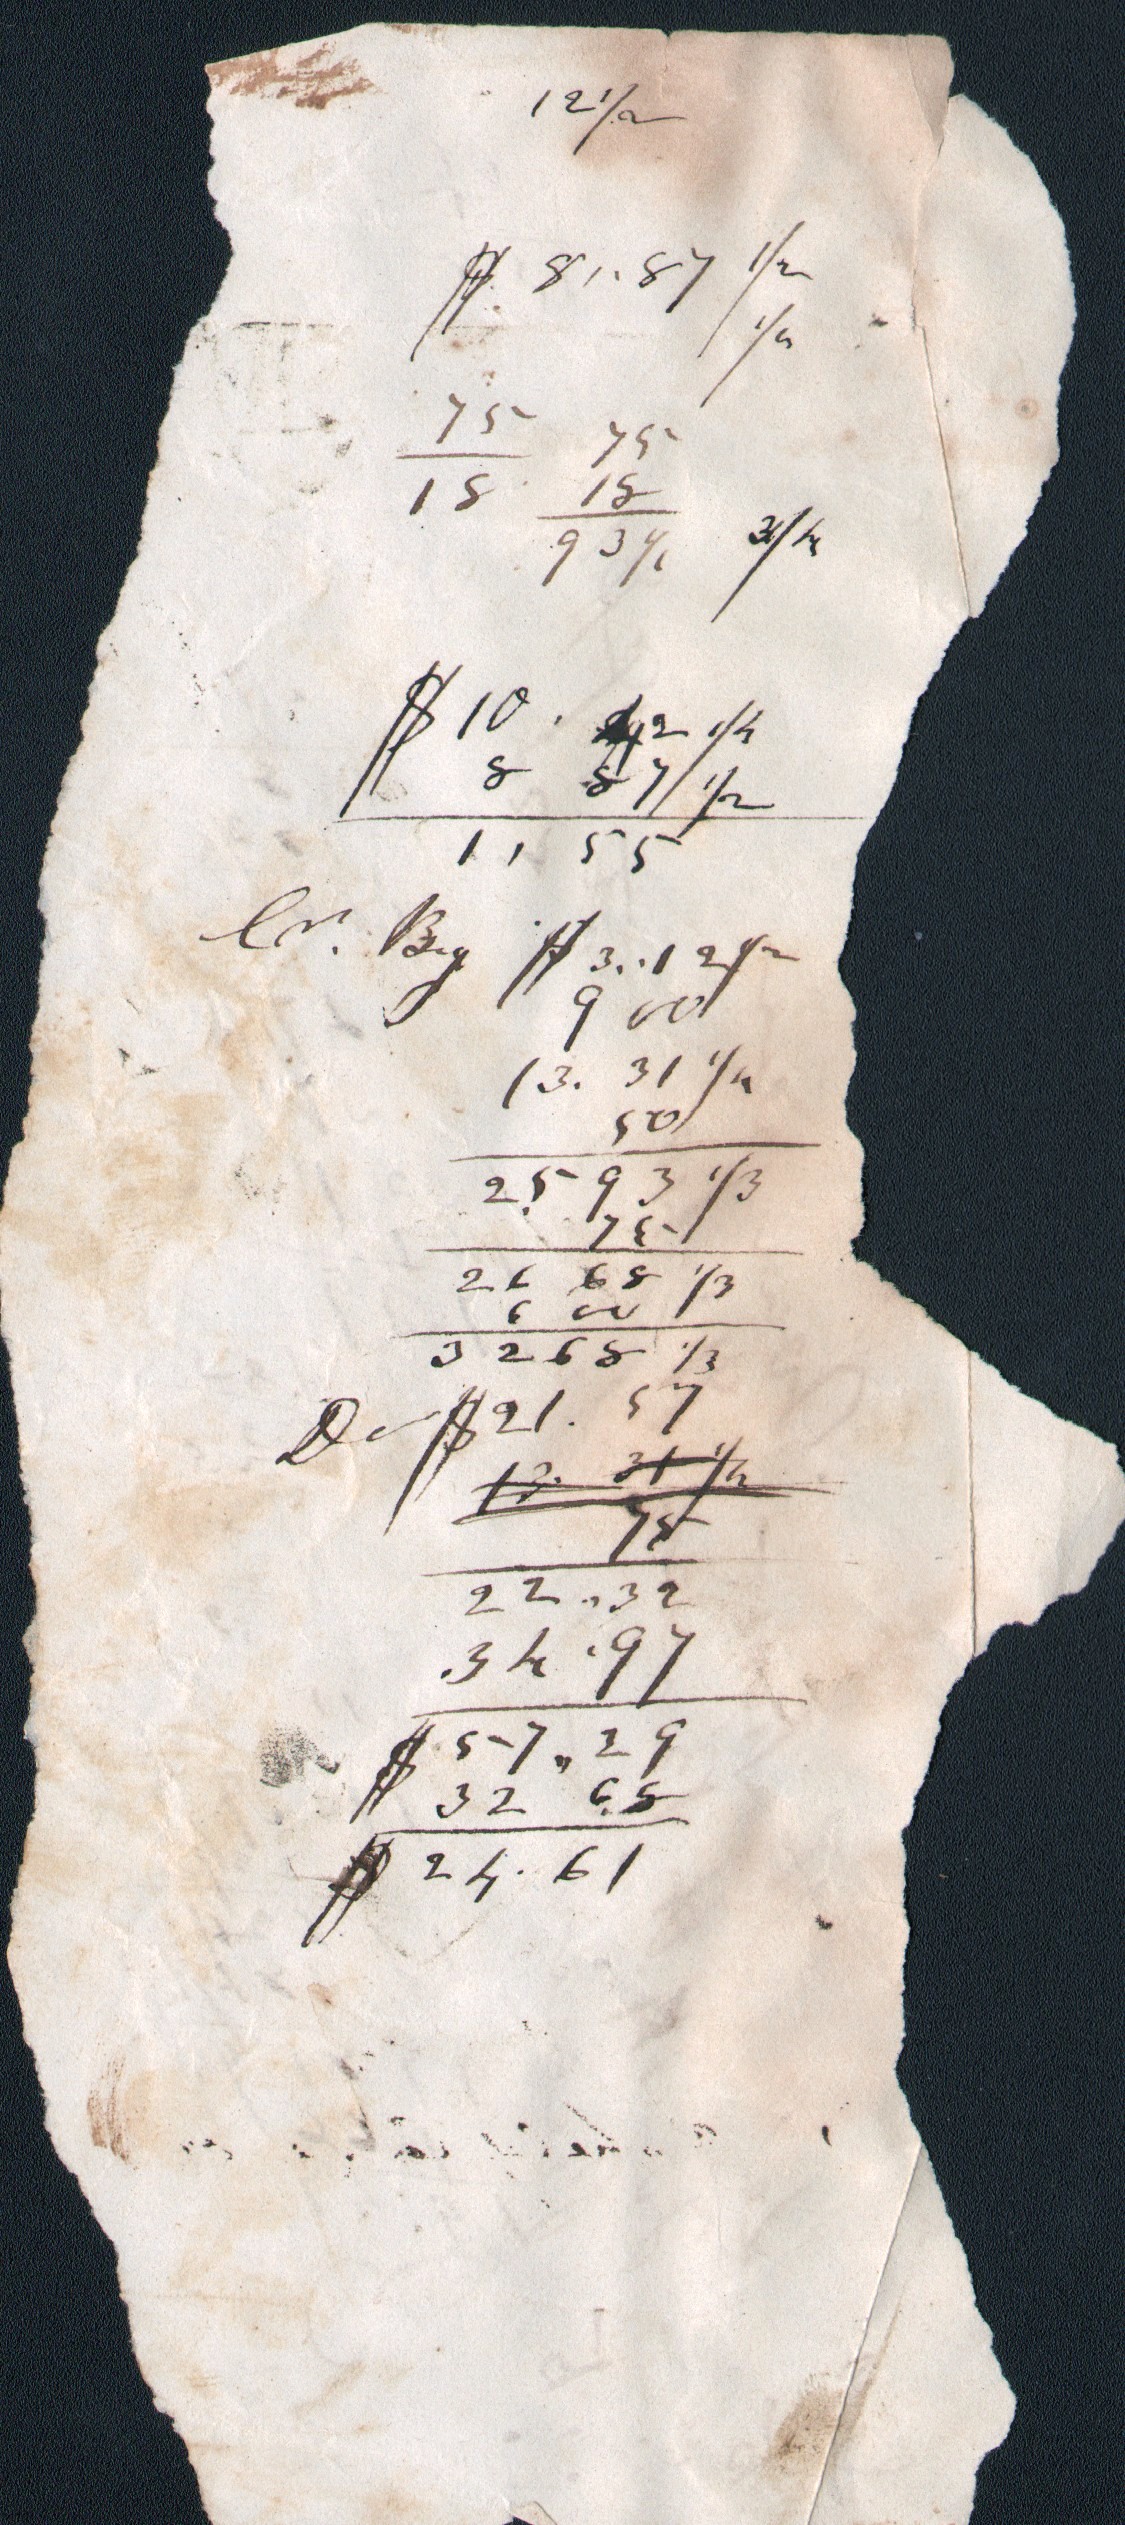 12 1/2
$ 8,.87 1/2
1/4
75 75
18 18
93 3/4
$ 10. 42 1/4
8 87 1/2
1, 55
Cr. By $ 3..12 1/2
9 00
13. 31 1/4
50
25 93 1/3
75
26 68 1/3
6 00
32 68 1/3
Dr $ 21. 57
13. 31 1/4
75
22.,32
.34.97
$ 57,,29
32 68
$ 24.61